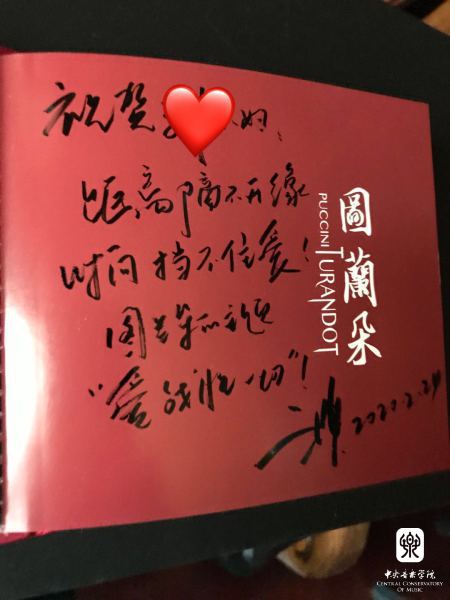 祝贺
距离隔不开缘
时间挡不住爱！
图兰朵的主题
“爱战胜一切”！
2020.2.24
圖蘭朵
PUCCINI
TURANDOT
中央音乐学院
CENTRAL CONSERVATORY
OF MUSIC